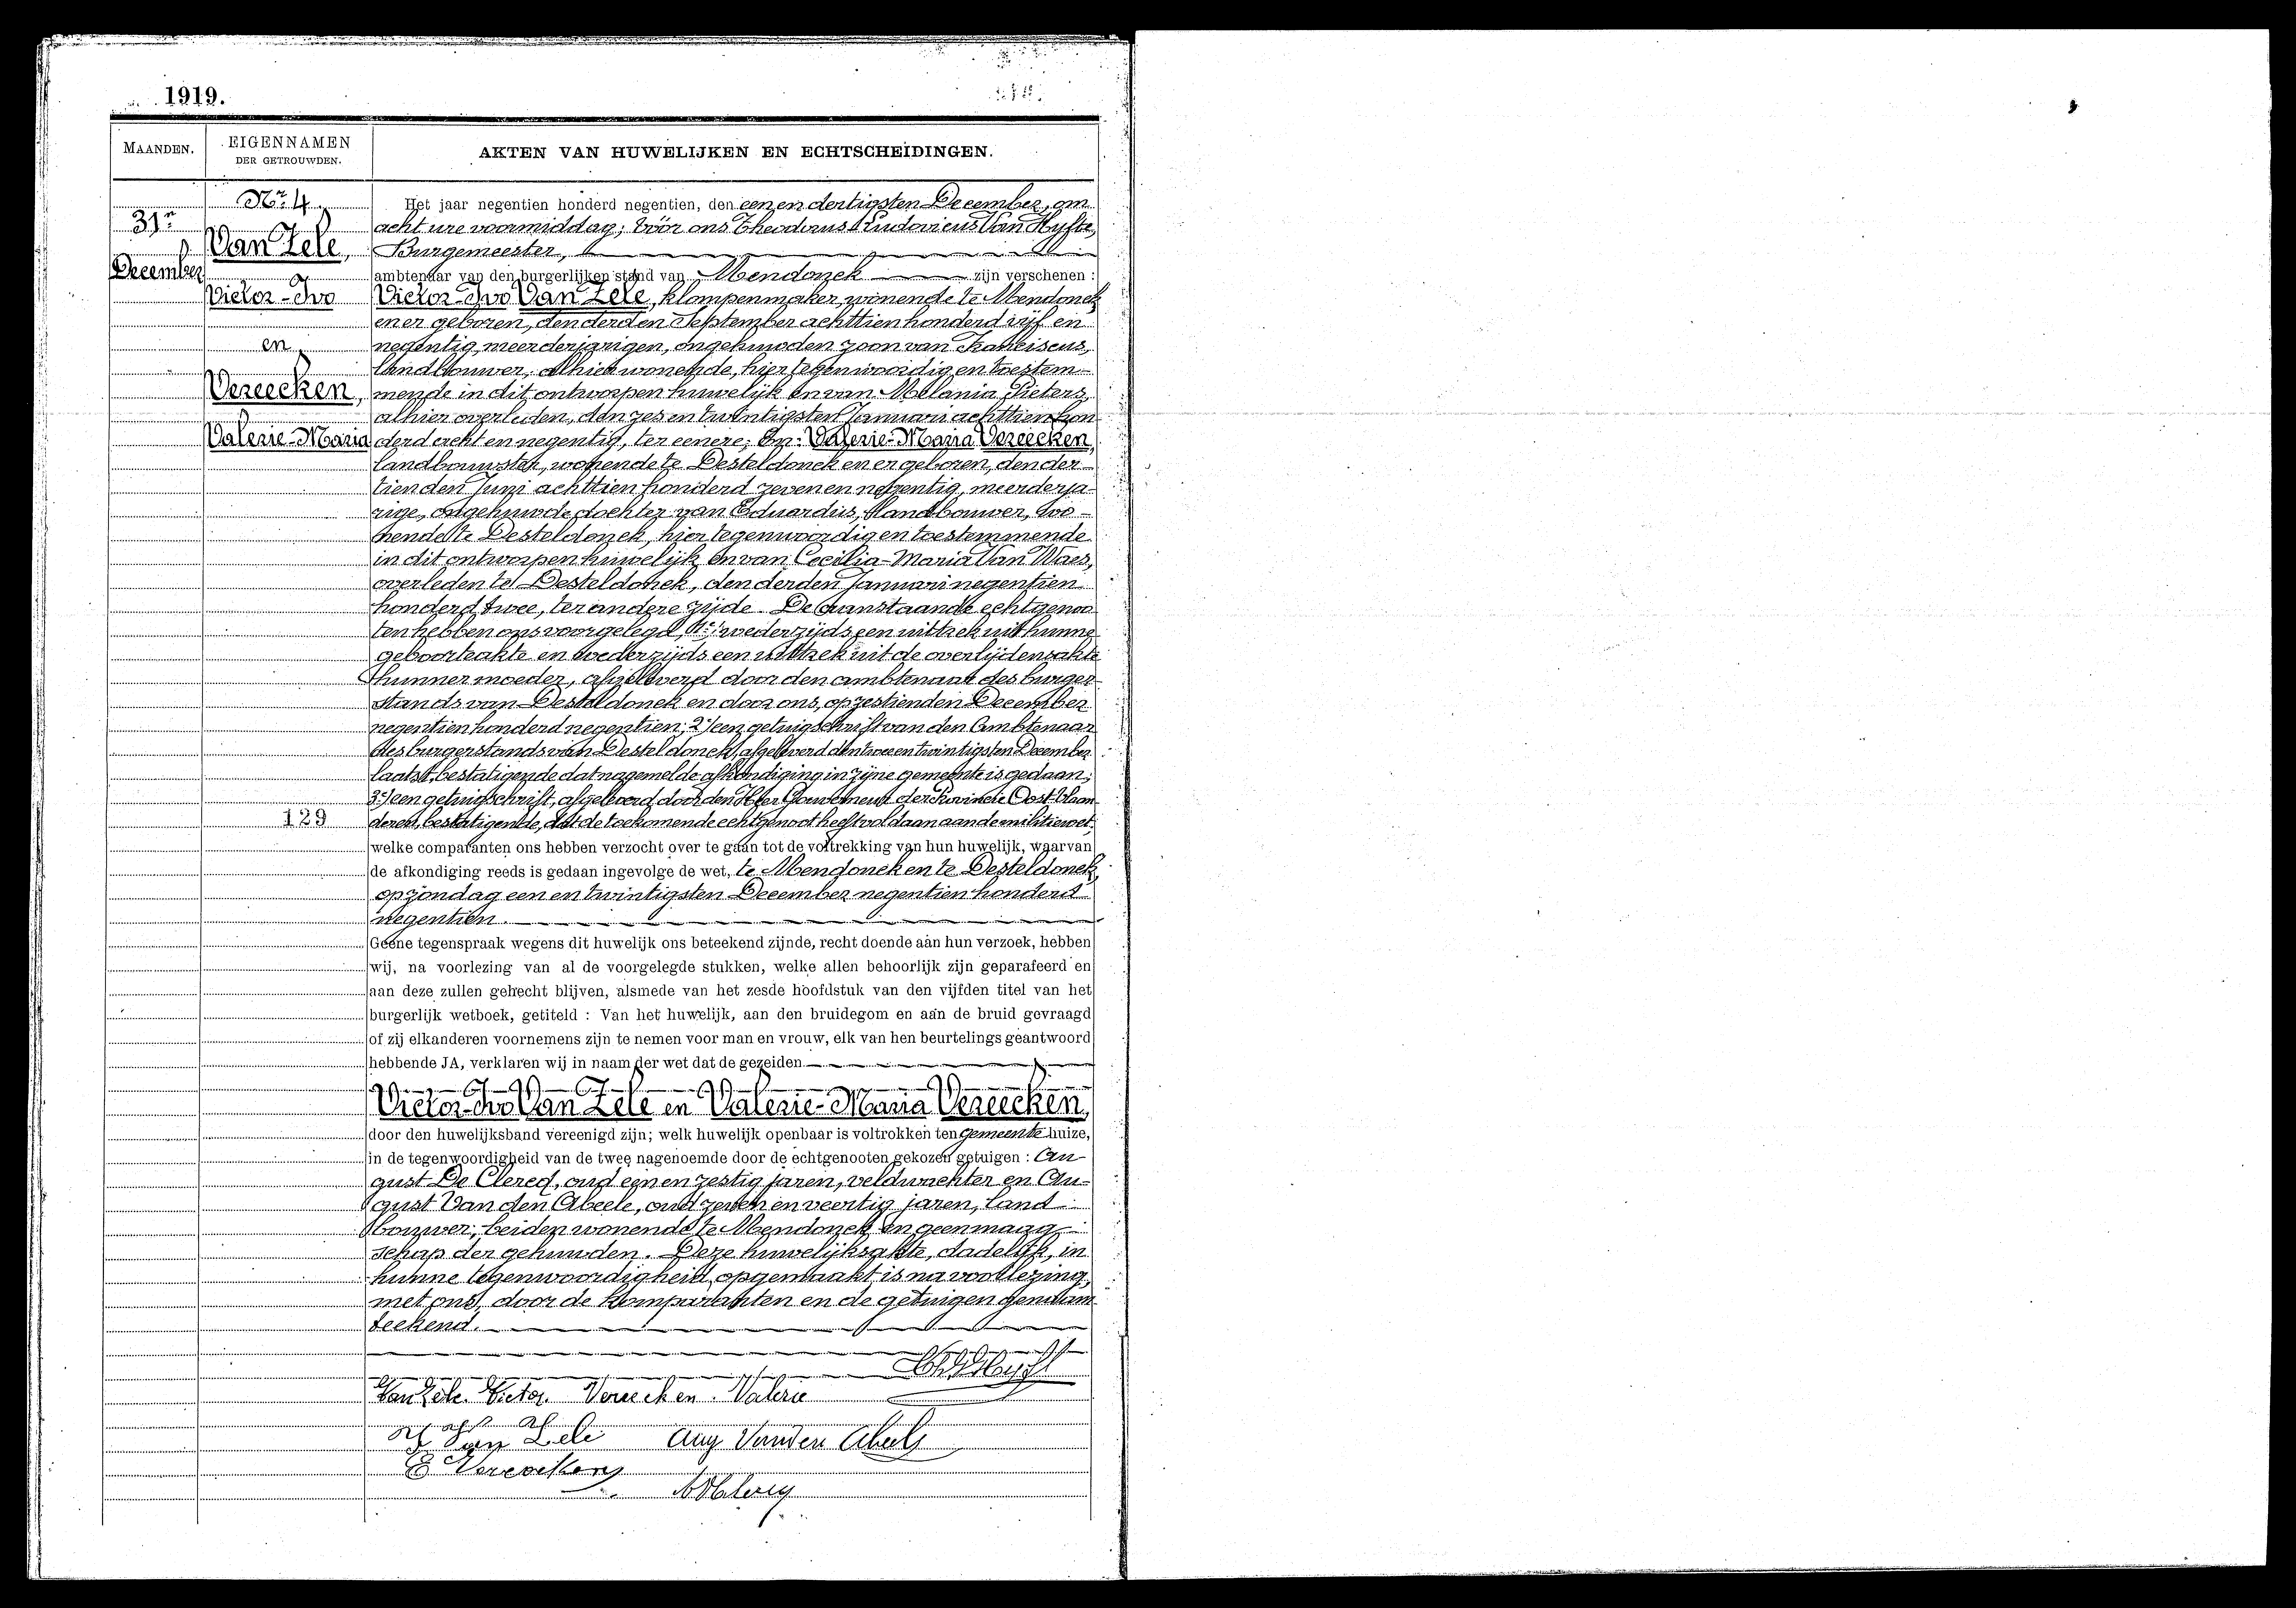 1919.
MAANDEN.
EIGENNAMEN
DER GETROUWDEN.
AKTEN VAN HUWELIJKEN EN ECHTSCHEIDINGEN.
Nr. 4.
31n
December
Van Zele,
Victor-Ivo
en
Vereecken,
Valerie-Maria
129
Het jaar negentien honderd negentien, den een en dertigsten December, om
acht ure voormiddag; vóór ons Theodorus Ludovicus Van Hyfte,
Burgemeester,
ambtenaar van den burgerlijken stand van Mendonck zijn verschenen :
Victor-Ivo Van Zele, klompenmaker, wonende te Mendonck
en er geboren, den derden September achttien honderd vijf en
negentig, meerderjarigen, ongehuwden zoon van Franciscus,
landbouwer, alhier wonende, hier tegenwoordig en toestem-
mende in dit ontworpen huwelijk en van Melania Pieters,
alhier overleden, den zes en twintigsten Januari achttien hon-
derd acht en negentig, ter eenere; En: Valerie-Maria Vereecken,
landbouwster, wonende te Desteldonck en er geboren, den der-
tienden Juni achttien honderd zeven en negentig, meerderja-
rige, ongehuwde dochter van Eduardus, landbouwer, wo-
nende te Desteldonck, hier tegenwoordig en toestemmende
in dit ontworpen huwelijk en van Cecilia-Maria Van Waes,
overleden te Desteldonck, den derden Januari negentien
honderd twee, ter andere zijde. De aanstaande echtgenoo-
ten hebben ons voorgelegd, 1e/ wederzijds een uittrek uit hunne
geboorteakte en wederzijds een uittrek uit de overlijdensakte
hunner moeder, afgeleverd door den ambtenaar des burger-
stands van Desteldonck en door ons, op zestienden December
negentien honderd negentien; 2e/ een getuigschrift van den Ambtenaar
des burgerstands van Desteldonck, afgeleverd den twee en twintigsten December
laatst, bestatigende dat nagemelde afkondiging in zijne gemeente is gedaan;
3e/ een getuigschrift, afgeleverd door den Heer Gouverneur der Provincie Oost-Vlaan-
deren, bestatigende, dat de toekomende echtgenoot heeft voldaan aan de militiewet,
welke comparanten ons hebben verzocht over te gaan tot de voltrekking van hun huwelijk, waarvan
de afkondiging reeds is gedaan ingevolge de wet, te Mendonck en te Desteldonck,
op zondag een en twintigsten December negentien honderd
negentien.
Geene tegenspraak wegens dit huwelijk ons beteekend zijnde, recht doende aan hun verzoek, hebben
wij, na voorlezing van al de voorgelegde stukken, welke allen behoorlijk zijn geparafeerd en
aan deze zullen gehecht blijven, alsmede van het zesde hoofdstuk van den vijfden titel van het
burgerlijk wetboek, getiteld : Van het huwelijk, aan den bruidegom en aan de bruid gevraagd
of zij elkanderen voornemens zijn te nemen voor man en vrouw, elk van hen beurtelings geantwoord
hebbende JA, verklaren wij in naam der wet dat de gezeiden
Victor-Ivo Van Zele en Valerie-Maria Vereecken,
door den huwelijksband vereenigd zijn; welk huwelijk openbaar is voltrokken ten gemeentehuize,
in de tegenwoordigheid van de twee nagenoemde door de echtgenooten gekozen getuigen : Au-
gust De Clercq, oud een en zestig jaren, veldwachter en Au-
gust Van den Abeele, oud zeven en veertig jaren, land-
bouwer; beiden wonende te Mendonck en geen maag-
schap der gehuwden. Deze huwelijksakte, dadelijk, in
hunne tegenwoordigheid, opgemaakt, is na voorlezing,
met ons, door de komparanten en de getuigen genaam-
teekend.
Van Zele Victor Vereecken Valerie
F Van Zele Aug Vanden Abeele
E Vereecken